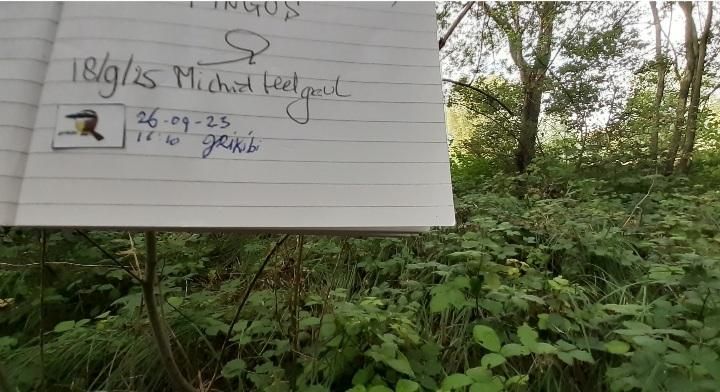 PINGOS
18/9/25 Michiel feelgaul
26-09-25
16:10 grikibi